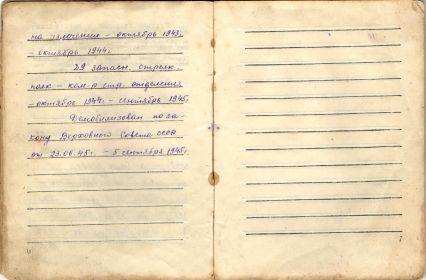 на излечении - октябрь 1943г.
- октябрь 1944г.
29 запасн. стрелк.
полк - ком-р стр. отделения
- октябрь 1944г. - сентябрь 1945г.
Демобилизован по за-
кону Верховного Совета СССР
от 23.06.45г. - 5 сентября 1945г.
7